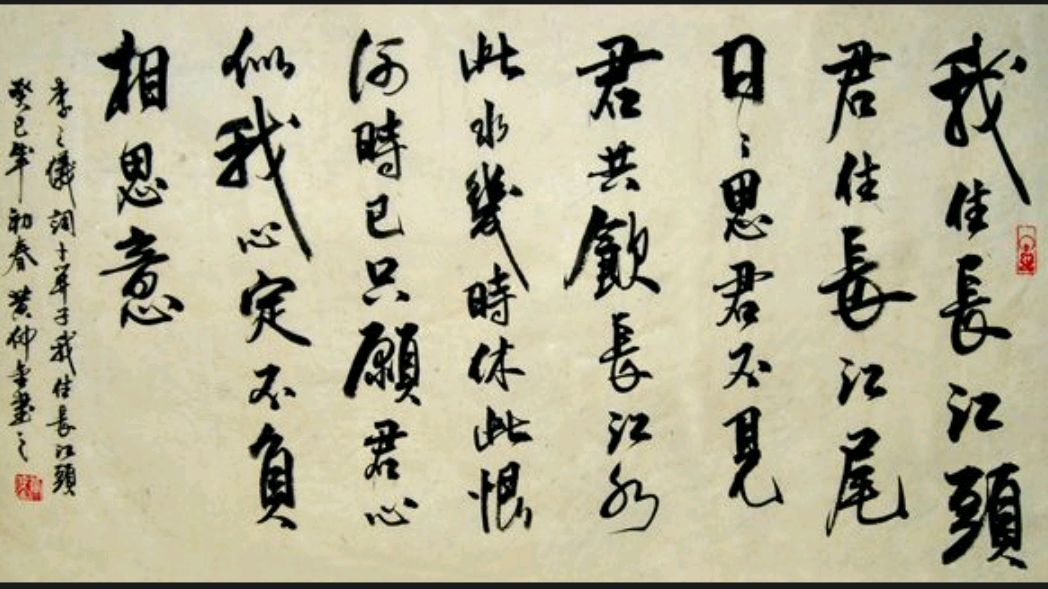 我住長江頭
君住長江尾
日〻思君不見
君共飲長江水
此水幾時休此恨
何時已只願君心
似我心定不負
相思意
李之儀詞卜算子我住長江頭
癸巳年初春黄仲金書之